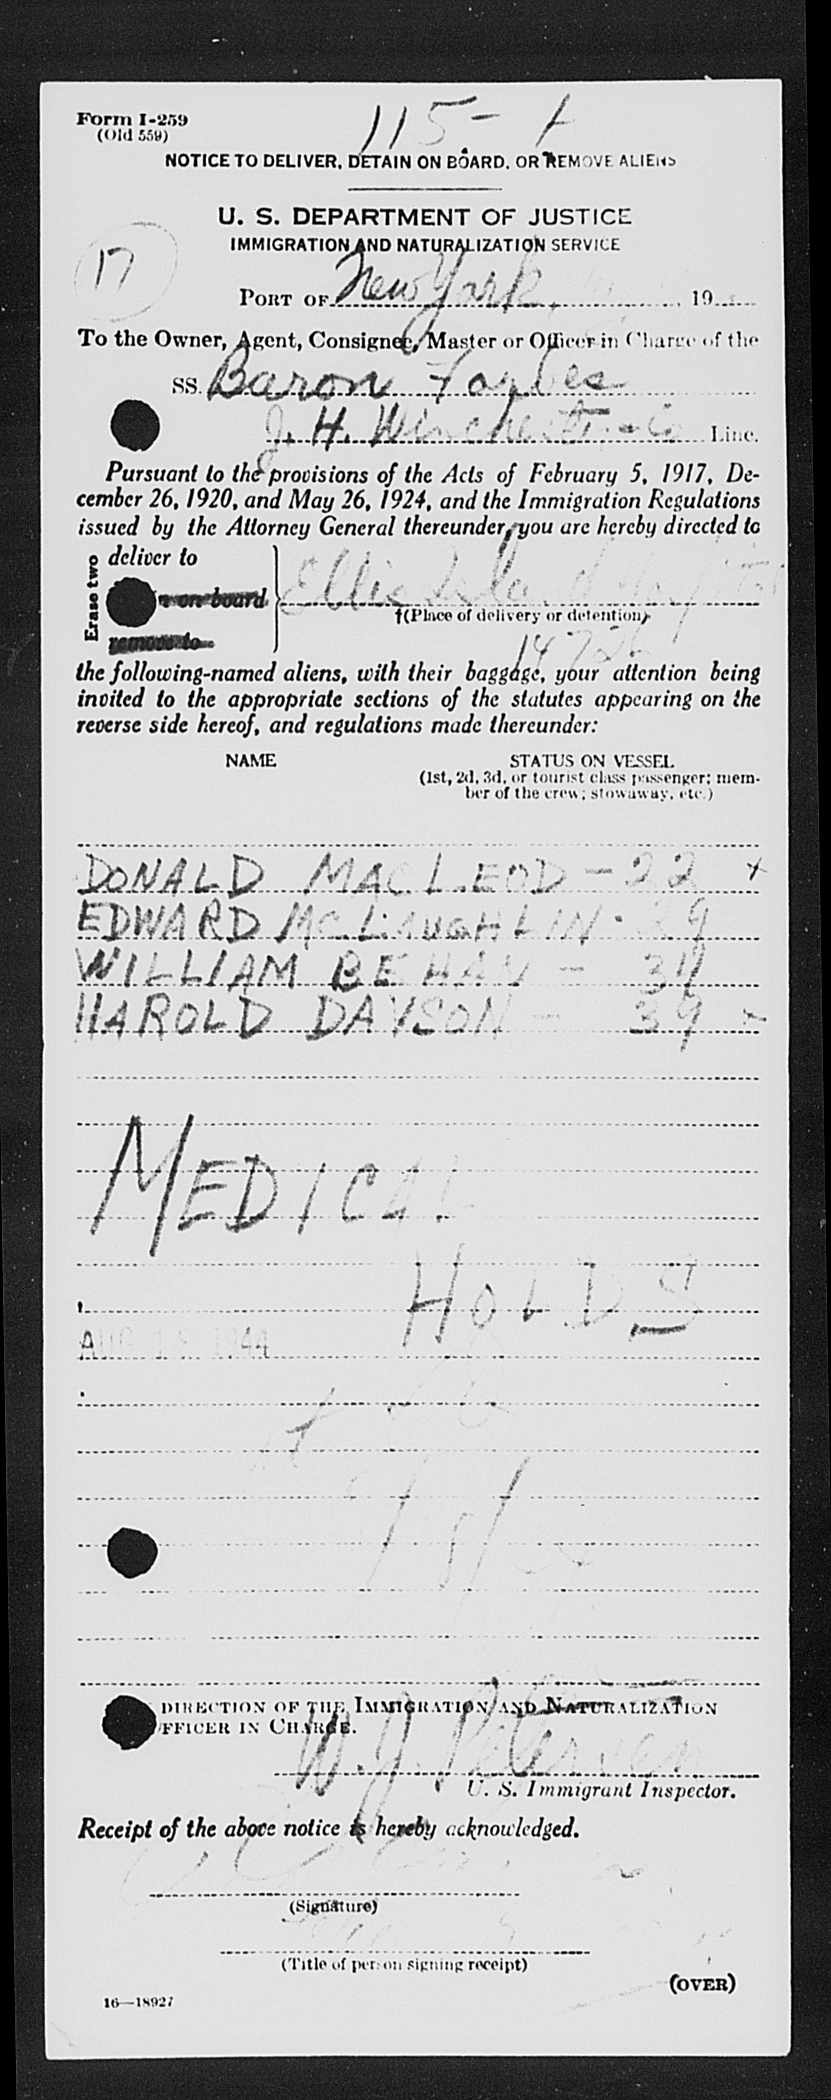 Form I-259
(Old 559)
115-
NOTICE TO DELIVER, DETAIN ON BOARD, OR REMOVE ALIENS
U. S. DEPARTMENT OF JUSTICE
IMMIGRATION AND NATURALIZATION SERVICE
17
PORT OF New York, 19
To the Owner, Agent, Consignee, Master or Officer in Charge of the
SS. Baron Forbes
J. H. Winchester & Co Line.
Pursuant to the provisions of the Acts of February 5, 1917, De-
cember 26, 1920, and May 26, 1924, and the Immigration Regulations
issued by the Attorney General thereunder, you are hereby directed to
Erase two
deliver to
on board
remove to
Ellis Island
†(Place of delivery or detention)
the following-named aliens, with their baggage, your attention being
invited to the appropriate sections of the statutes appearing on the
reverse side hereof, and regulations made thereunder:
NAME STATUS ON VESSEL
(1st, 2d, 3d, or tourist class passenger; mem-
ber of the crew; stowaway, etc.)
DONALD MACLEOD - 22 x
EDWARD MCLAUGHLIN - 39
WILLIAM BEHAN - 34
HAROLD DAVSON - 39
MEDICAL
HOLDS
AUG 1944
DIRECTION OF THE IMMIGRATION AND NATURALIZATION
OFFICER IN CHARGE.
W. J. Petersen
U. S. Immigrant Inspector.
Receipt of the above notice is hereby acknowledged.
(Signature)
(Title of person signing receipt)
(OVER)
16—18927